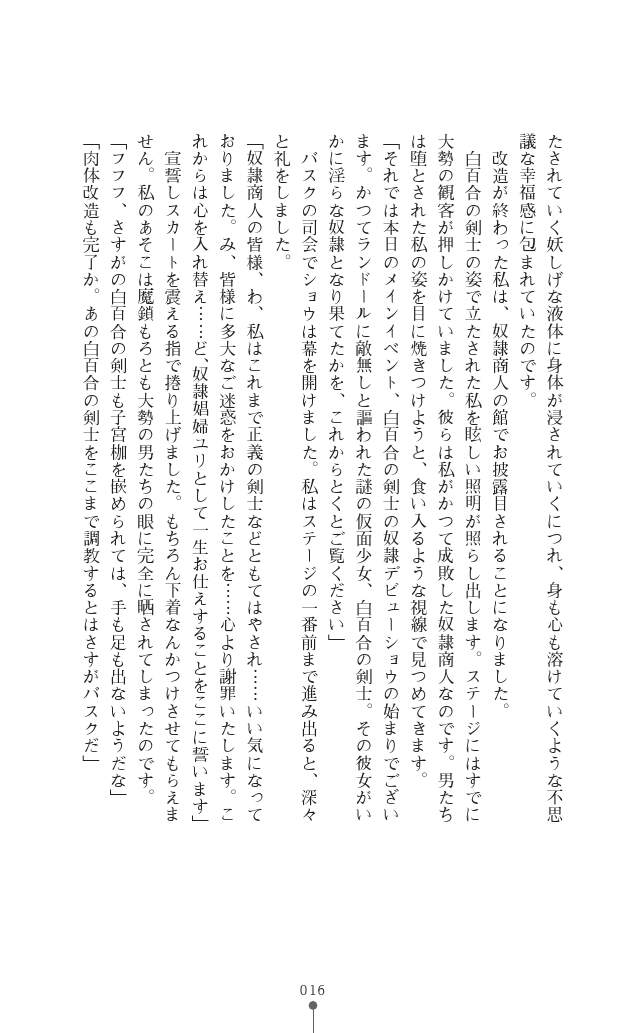 たされていく妖しげな液体に身体が浸されていくにつれ、身も心も溶けていくような不思
議な幸福感に包まれていたのです。
　改造が終わった私は、奴隷商人の館でお披露目されることになりました。
　白百合の剣士の姿で立たされた私を眩しい照明が照らし出します。ステージにはすでに
大勢の観客が押しかけていました。彼らは私がかつて成敗した奴隷商人なのです。男たち
は堕とされた私の姿を目に焼きつけようと、食い入るような視線で見つめてきます。
「それでは本日のメインイベント、白百合の剣士の奴隷デビューショウの始まりでござい
ます。かつてランドールに敵無しと謳われた謎の仮面少女、白百合の剣士。その彼女がい
かに淫らな奴隷となり果てたかを、これからとくとご覧ください」
　バスクの司会でショウは幕を開けました。私はステージの一番前まで進み出ると、深々
と礼をしました。
「奴隷商人の皆様、わ、私はこれまで正義の剣士などともてはやされ……いい気になって
おりました。み、皆様に多大なご迷惑をおかけしたことを……心より謝罪いたします。こ
れからは心を入れ替え……ど、奴隷娼婦ユリとして一生お仕えすることをここに誓います」
　宣誓しスカートを震える指で捲り上げました。もちろん下着なんかつけさせてもらえま
せん。私のあそこは魔鎖もろとも大勢の男たちの眼に完全に晒されてしまったのです。
「フフフ、さすがの白百合の剣士も子宮枷を嵌められては、手も足も出ないようだな」
「肉体改造も完了か。あの白百合の剣士をここまで調教するとはさすがバスクだ」
016